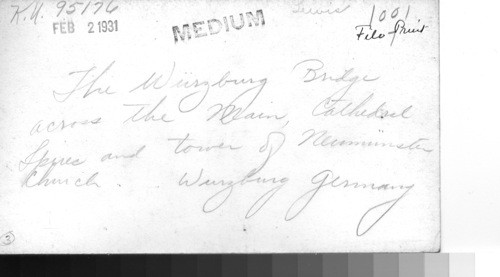 K.U. 95176
FEB 2 1931
MEDIUM
Lewis
1001
File Print
The Würzburg Bridge
across the Main, Cathedral
Spires and tower of Neumünster
Church. Wurzburg Germany
3